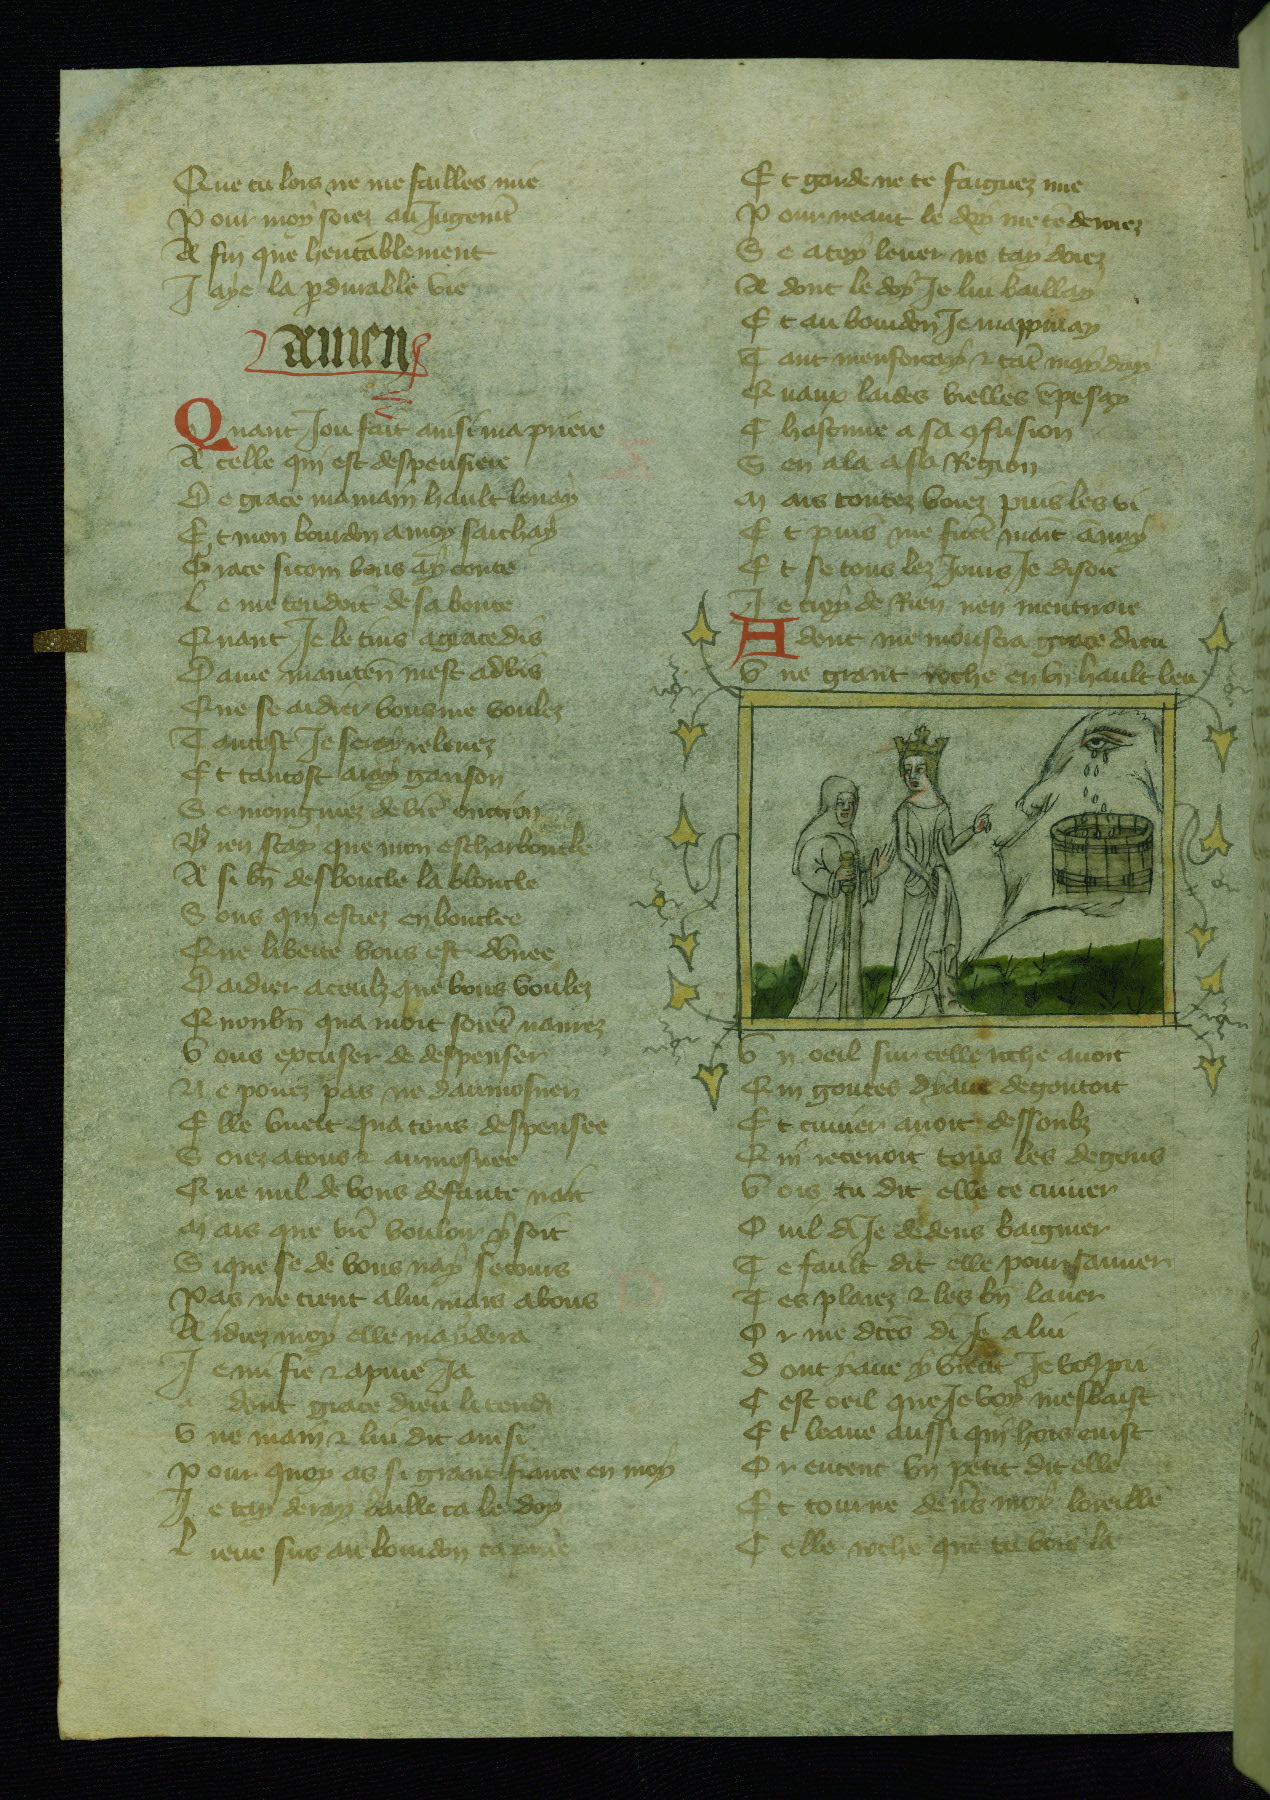 Que tu lors ne me failles mie
Pour moy soiez au Jugemt
A fin que hertablement
J aye la pdurable vie
amen
Quant Jou fait ainsi ma priere
A celle qui est despensiere
De grace ma main hault levay
Et mon bourdon a moy sachay
Grace sicom vous ay conte
Le me tendoit de sa bonte
Quant Je le tins a grace dis
Dame mainten mest advis
Que se aidier vous me voulez
Tantost Je seray relevez
Et tantost aray garison
Se moingniez de vre onction
Bien scay que mon escharboucle
A si bn desboucle la bloucle
Soubs qui estiez enbouclee
Que liberte vous est donnee
Daidier a ceulz que vous voulez
Quonbn qua mort soiet navrez
Vous excuser de despenser
Ne pouez pas ne daumosner
Elle vuelt qua tous despensee
Soiez a tous & aumosnee
Que nul de vous defaute nait
Mais que vre vouloir y soit
Sique se de vous nay secours
Pas ne tient a lui mais a vous
Aidiez moy elle maydera
Je mi fie & apuie Ja
a dont grace dieu le tendi
Une main & lui dit ainsi
Pour quoy as si grant fiance en moy
Je tay deray baille ca le doy
Lieve sus au bourdon tapuie
Et garde ne te faignez mie
Pour neant le doy me tedroiez
Se a toy lever ne tay doiez
A dont le doy Je lui baillay
Et au bourdon Je mappuiay
Tant menforcay & tat mayday
Quaux laides vielles e pesay
Chascune a sa 9fusion
Sen ala a sa Region
Mais toutez voiez puis les vi
Et puis me firet mait anuy
Et se tous lez Jours Je disoie
Je croy de Rien nen mentiroie
Adont me monstra grace dieu
Une grant roche en vn hault leu
Un oeil sur celle roche avoit
Qui goutes dyaue degoutoit
Et cuvier avoit dessoubz
Qui recevoit tous les degous
Vois tu dit elle ce cuvier
Ouil di Je dedens baignier
Te fault dit elle pour saner
Tes plaiez & les bn laver
Or me dctes di Je a lui
Dont yaue y vient Je vo9 pri
Cest oeil que Je voy mesbaist
Et leaue aussi qui hors en ist
Or entent vn petit dit elle
Et tourne devs moy loreille
Celle roche que tu vois la